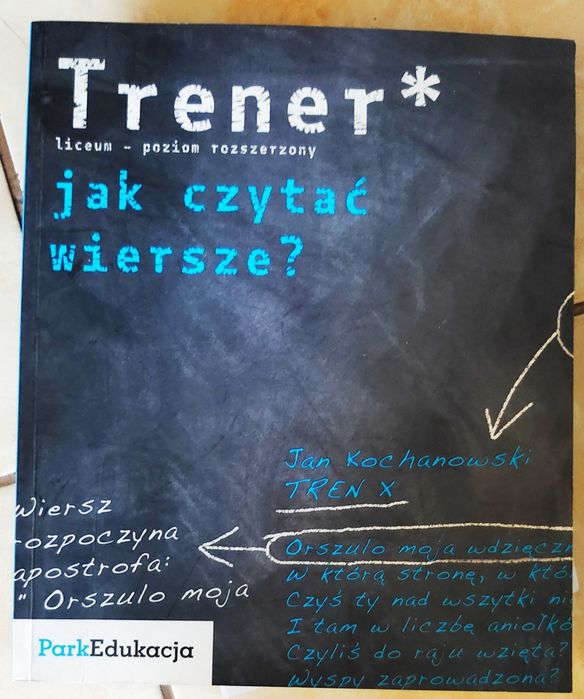 Trener*
liceum - poziom rozszerzony
jak czytać
wiersze?
Jan Kochanowski
TREN X
Wiersz
rozpoczyna
apostrofa:
" Orszulo moja
Orszulo moja wdzięczn
w którą stronę, w któ
Czyś ty nad wszytki ni
I tam w liczbę aniołkó
Czyliś do raju wzięta?
Wyspy zaprowadzona?
ParkEdukacja